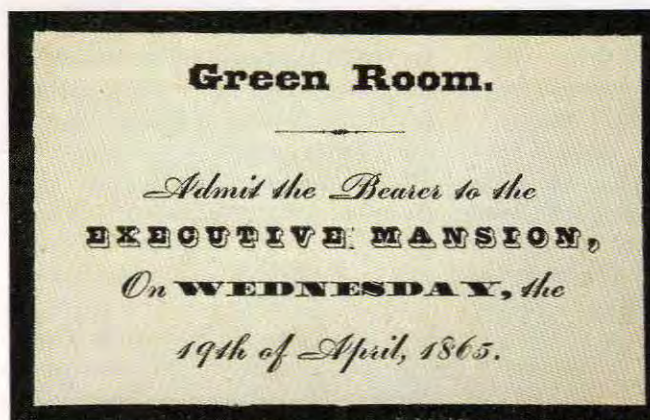 Green Room.
Admit the Bearer to the
EXECUTIVE MANSION,
On WEDNESDAY, the
19th of April, 1865.